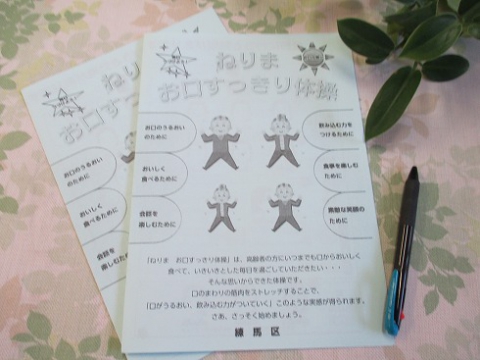 ねりま
お口すっきり体操
お口のうるおい
のために
おいしく
食べるために
会話を
楽しむために
飲み込む力を
つけるために
食事を楽しむ
ために
素敵な笑顔の
ために
「ねりま お口すっきり体操」は、高齢者の方にいつまでも口からおいしく
食べて、いきいきとした毎日を過ごしていただきたい・・・
そんな思いからできた体操です。
口のまわりの筋肉をストレッチすることで、
「口がうるおい、飲み込む力がついていく」このような実感が得られます。
さあ、さっそく始めましょう。
練馬区
ねりま
お口す
お口のうるおい
のために
おいしく
食べるために
会話を
楽しむために